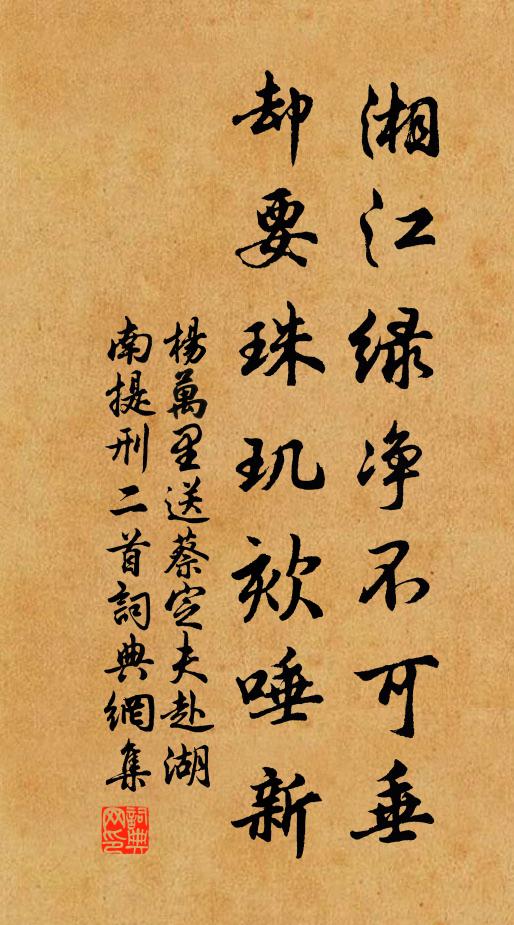 湘江绿净不可垂
却要珠玑欬唾新
楊萬里送蔡定夫赴湖
南提刑二首詞典網集
詞典网印